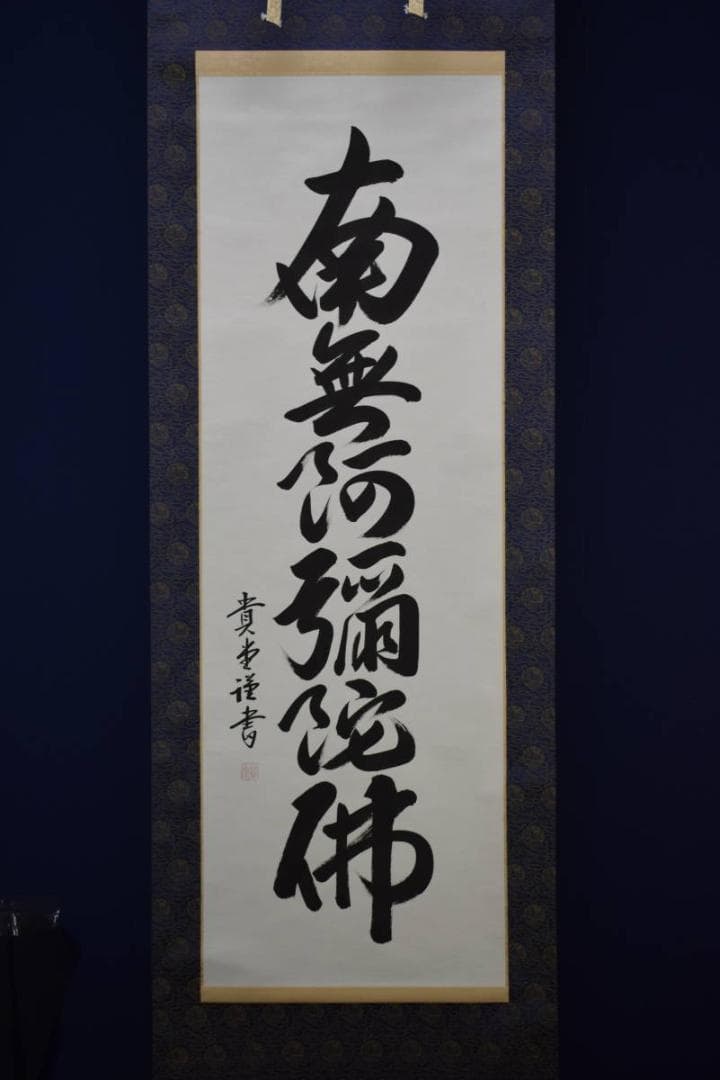 南無阿彌陀佛
貴堂謹書